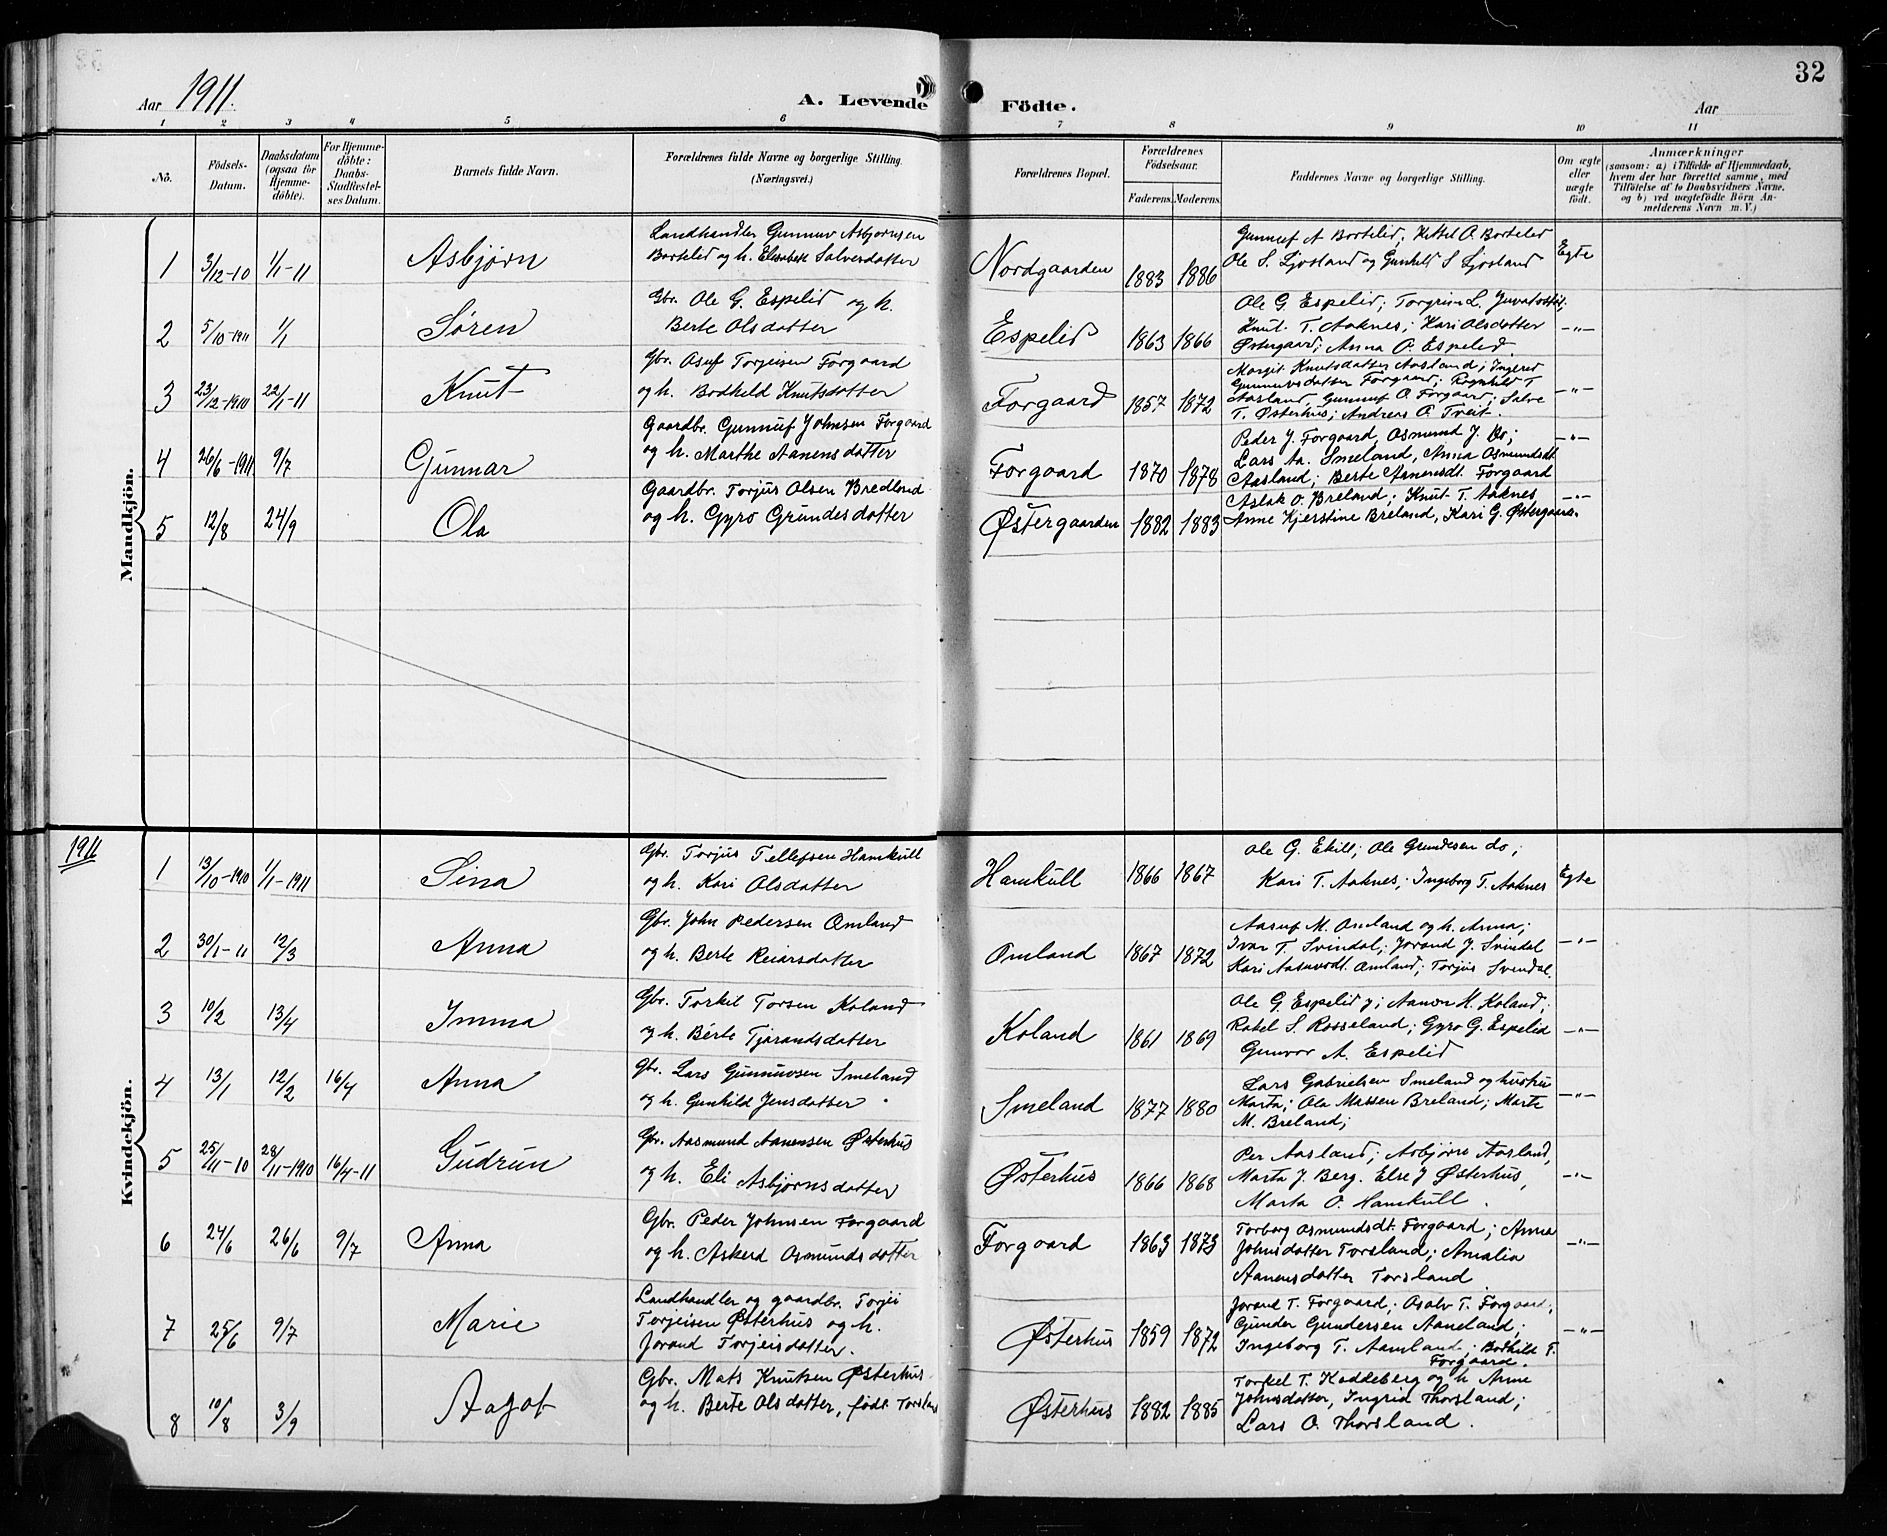 Aar 1911.
A. Levende Födte.
Aar
32
1 2 3 4 5 6 7 8 9 10 11
No.
Födsels-Datum.
Daabsdatum (ogsaa for Hjemme-döbte).
For Hjemme-döbte: Daabs-Stadfæstel-ses Datum.
Barnets fulde Navn.
Forældrenes fulde Navne og borgerlige Stilling. (Næringsvei.)
Forældrenes Bopæl.
Forældrenes Födselsaar.
Faderens. Moderens.
Faddernes Navne og borgerlige Stilling.
Om ægte eller uægte födt.
Anmærkninger
(saasom: a) i Tilfælde af Hjemmedaab, hvem der har forrettet samme, med Tilföielse af to Daabsvidners Navne. og b) ved uægtefödte Börn An-melderens Navn m. V.)
Mandkjön.
1 3/12-10 1/1-11 Asbjørn
Landhandler Gunnuv Asbjørnsen
Bortelid og h. Elisabeth Salvesdatter
Nordgaarden 1883 1886
Gunnuf A Bortelid; Kittel O. Bortelid
Ole S. Ljosland og Gunhild S Ljosland
Egte
2 5/10-1911 1/1 Søren
Gbr. Ole G. Espelid og h.
Berte Olsdatter
Espelid 1863 1866
Ole G Espelid; Torgrim L.
Knut T. Aaknes; Kari Olsdatter
Østergaard; Anna O. Espelid
-"-
3 23/12-1910 22/1-11 Knut
Gbr. Asuf Torjeisen Forgaard
og h. Bodhild Knutsdatter
Forgaard 1857 1872
Margit Knutsdatter Aasland; Ingerid
Gunnuvsdatter Forgaard; Ragnhild T
Aasland, Gunnuf O. Forgaard; Salve
T. Østerhus; Andreas O. Tveit.
-"-
4 26/6-1911 9/7 Gunnar
Gaardbr. Gunnuf Johnsen Forgaard
og h. Marthe Aanensdatter
Forgaard 1870 1878
Peder J. Forgaard, Osmund J. Os;
Lars Aa. Smeland, Anna Osmundsdt.
Aasland; Berte Aanensdt. Forgaard
-"-
5 12/8 24/9 Ola
Gaardbr. Torjus Olsen Bredland
og h. Gyro Grundesdatter
Østergaarden 1882 1883
Aslak O. Breland; Knut T. Aaknes
Anne Kjerstine Breland, Kari G. Østergaard.
-"-
1911
Kvindekjön.
1 13/10-1910 1/1-1911 Sina
Gbr. Torjus Tellefsen Hamkull
og h. Kari Olsdatter
Hamkull 1866 1867
Ole G. Ekill; Ole Grundesen do;
Kari T. Aaknes; Ingeborg T. Aaknes
Egte
2 30/1-11 12/3 Anna
Gbr. John Pedersen Omland
og h. Berte Reiarsdatter
Omland 1867 1872
Aasuf M. Omland og h. Anna;
Ivar T. Svindal; Jorand J. Svindal
Kari Aasuvsdt. Omland; Torjus Svendal.
-"-
3 10/2 13/4 Imma
Gbr. Torkel Torsen Koland
og h. Berte Tjørandsdatter
Koland 1861 1869
Ole G. Espelid; Aanon M. Koland;
Rakel S. Rosseland; Gyro G. Espelid
Gunvor A. Espelid
-"-
4 13/1 12/2 16/4 Anna
Gbr. Lars Gunnuvsen Smeland
og h. Gunhild Jensdatter
Smeland 1877 1880
Lars Gabrielsen Smeland og hustru
Marta; Ola Massen Breland; Marte
M. Breland;
-"-
5 25/11-10 28/11-1910 16/4-11 Gudrun
Gbr. Aasmund Aanensen Østerhus
og h. Eli Asbjørnsdatter
Østerhus 1866 1868
Per Aasland; Asbjørn Aasland,
Marta J. Berg. Else J Østerhus,
Marta O. Hamkull.
-"-
6 24/6 26/6 9/7 Anna
Gbr. Peder Johnsen Forgaard
og h. Askerd Osmundsdatter
Forgaard 1863 1873
Torborg Osmundsdt. Forgaard; Anna
Johnsdatter Torsland; Amalia
Aanensdatter Torsland
-"-
7 25/6 9/7 Marie
Landhandler og gaardbr. Torjei
Torjeisen Østerhus og h.
Jorand Torjeisdatter.
Østerhus 1859 1872
Jorand T. Forgaard; Osalv T. Forgaard;
Gunder Gundersen Aaneland;
Ingeborg T. Aamland; Bodhild T.
Forgaard.
-"-
8 10/8 3/9 Aagot
Gbr. Mats Knutsen Østerhus
og h. Berte Olsdatter, født Torsland
Østerhus 1882 1885
Torkel T. Haddeberg og h Anne
Johnsdatter, Ingrid Thorsland;
Lars O. Thorsland.